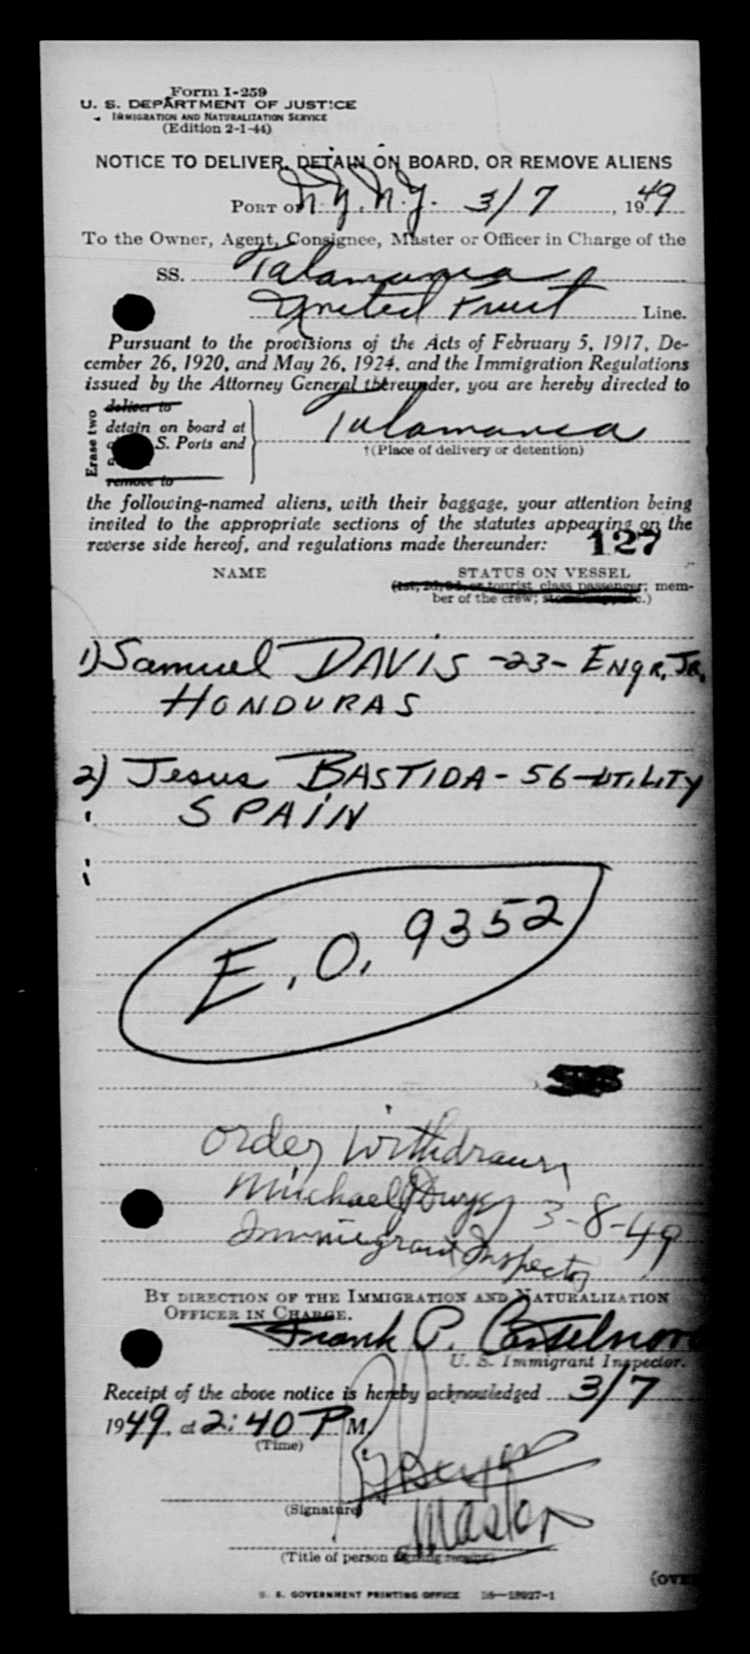 Form I-259
U. S. DEPARTMENT OF JUSTICE
IMMIGRATION AND NATURALIZATION SERVICE
(Edition 2-1-44)
NOTICE TO DELIVER, DETAIN ON BOARD, OR REMOVE ALIENS
PORT OF N.Y., N.Y. 3/7, 1949
To the Owner, Agent, Consignee, Master or Officer in Charge of the
SS. Talamanca
United Fruit Line.
Pursuant to the provisions of the Acts of February 5, 1917, De-
cember 26, 1920, and May 26, 1924, and the Immigration Regulations
issued by the Attorney General thereunder, you are hereby directed to
Erase two
deliver to
detain on board at
S. Ports and
remove to
Talamanca
†(Place of delivery or detention)
the following-named aliens, with their baggage, your attention being
invited to the appropriate sections of the statutes appearing on the
reverse side hereof, and regulations made thereunder: 127
NAME STATUS ON VESSEL
(1st, 2d, 3d, or tourist class passenger; mem-
ber of the crew; .)
1) Samuel DAVIS -23- ENGR. JR.
HONDURAS
2) Jesus BASTIDA - 56 - UTILITY
SPAIN
E.O. 9352
Order Withdrawn
Michael Dwyer 3-8-49
Immigrant Inspector
BY DIRECTION OF THE IMMIGRATION AND NATURALIZATION
OFFICER IN CHARGE.
Frank P.
U. S. Immigrant Inspector.
Receipt of the above notice is hereby acknowledged 3/7
1949, at 2:40 P M.
(Time)
(Signature)
Master
(Title of person signing receipt)
(OVER
U. S. GOVERNMENT PRINTING OFFICE 16—18927-1